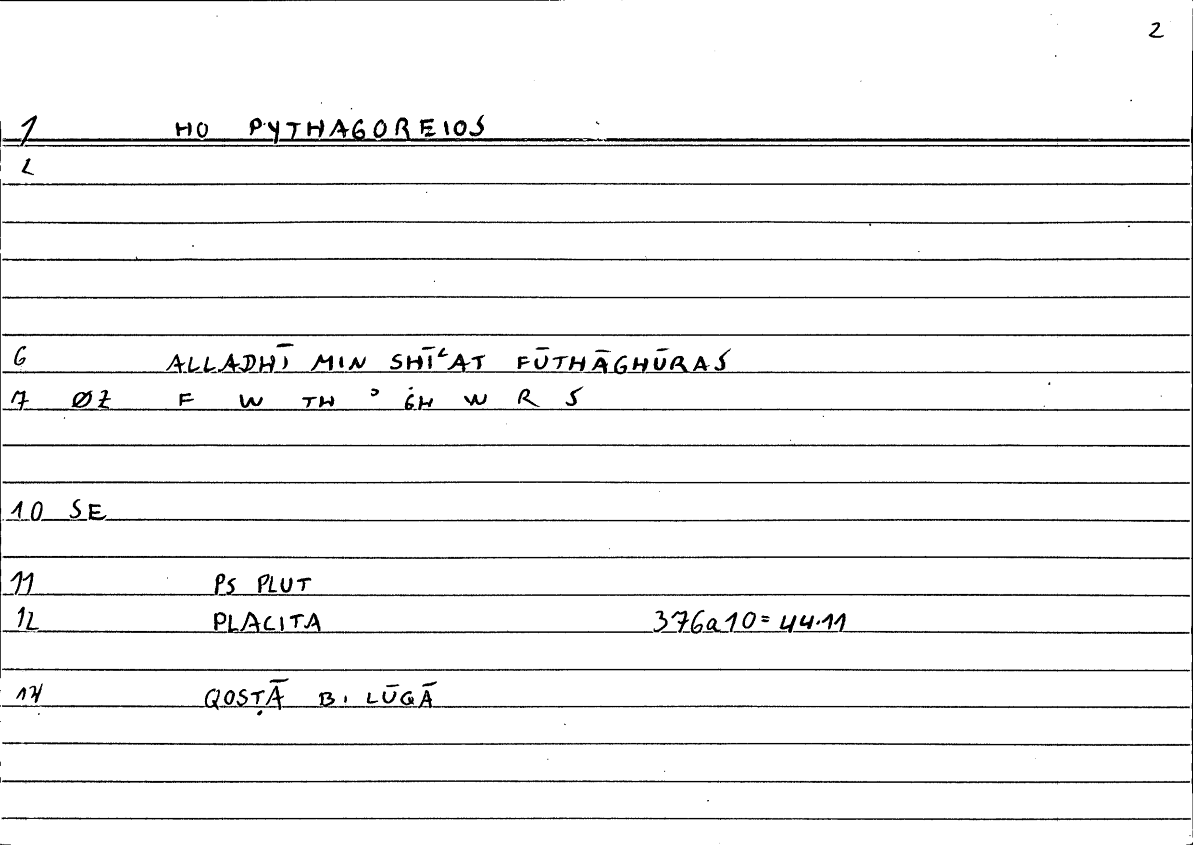 2
1 HO PYTHAGOREIOS
2
6 ALLADHĪ MIN SHĪʿAT FŪTHĀGHŪRAS
7 ØZ F W TH ʾ ĠH W R S
10 SE
11 PS PLUT
12 PLACITA 376a10=44.11
14 QOSṬĀ B. LŪQĀ